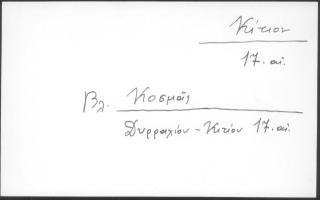 Κίτιον
17. αἰ.
Βλ. Κοσμᾶς
Δυρραχίου - Κιτίου 17. αἰ.